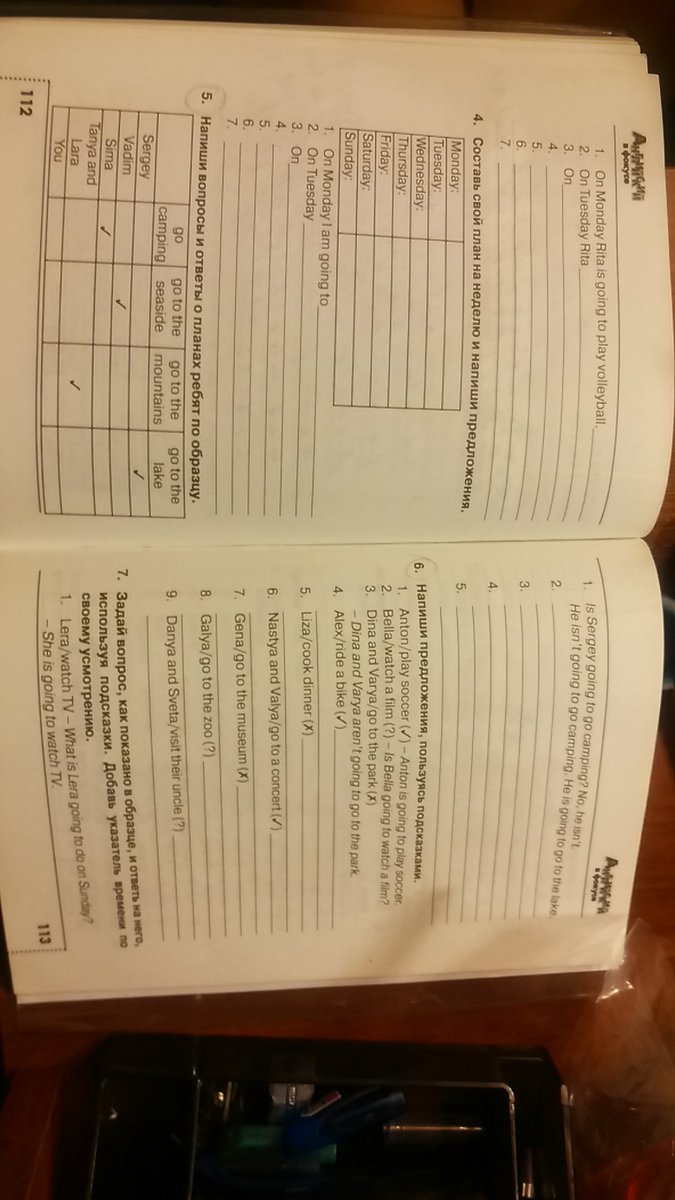 в фокусе
1. On Monday Rita is going to play volleyball.
2. On Tuesday Rita
3. On
4.
5.
6.
7.
4. Составь свой план на неделю и напиши предложения.
Monday:
Tuesday:
Wednesday:
Thursday:
Friday:
Saturday:
Sunday:
1. On Monday I am going to
2. On Tuesday
3. On
4.
5.
6.
7.
5. Напиши вопросы и ответы о планах ребят по образцу.
go camping go to the seaside go to the mountains go to the lake
Sergey ✓
Vadim ✓
Sima ✓
Tanya and Lara ✓
You
112
в фокусе
1. Is Sergey going to go camping? No, he isn't.
He isn't going to go camping. He is going to go to the lake.
2.
3.
4.
5.
6. Напиши предложения, пользуясь подсказками.
1. Anton/play soccer (✓) – Anton is going to play soccer.
2. Bella/watch a film (?) – Is Bella going to watch a film?
3. Dina and Varya/go to the park (✗)
– Dina and Varya aren't going to go to the park.
4. Alex/ride a bike (✓)
5. Liza/cook dinner (✗)
6. Nastya and Valya/go to a concert (✓)
7. Gena/go to the museum (✗)
8. Galya/go to the zoo (?)
9. Danya and Sveta/visit their uncle (?)
7. Задай вопрос, как показано в образце, и ответь на него,
используя подсказки. Добавь указатель времени по
своему усмотрению.
1. Lera/watch TV – What is Lera going to do on Sunday?
– She is going to watch TV.
113